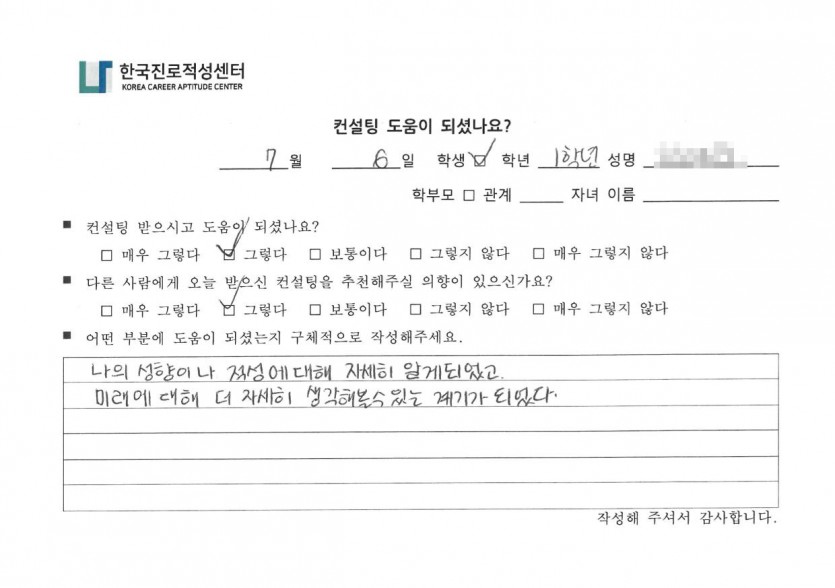 한국진로적성센터
KOREA CAREER APTITUDE CENTER
컨설팅 도움이 되셨나요?
7 월 6 일 학생 ☑ 학년 1학년 성명
학부모 □ 관계 자녀 이름
■ 컨설팅 받으시고 도움이 되셨나요?
□ 매우 그렇다 ☑ 그렇다 □ 보통이다 □ 그렇지 않다 □ 매우 그렇지 않다
■ 다른 사람에게 오늘 받으신 컨설팅을 추천해주실 의향이 있으신가요?
□ 매우 그렇다 ☑ 그렇다 □ 보통이다 □ 그렇지 않다 □ 매우 그렇지 않다
■ 어떤 부분에 도움이 되셨는지 구체적으로 작성해주세요.
나의 성향이나 적성에 대해 자세히 알게되었고
미래에 대해 더 자세히 생각해볼수 있는 계기가 되었다.
작성해 주셔서 감사합니다.